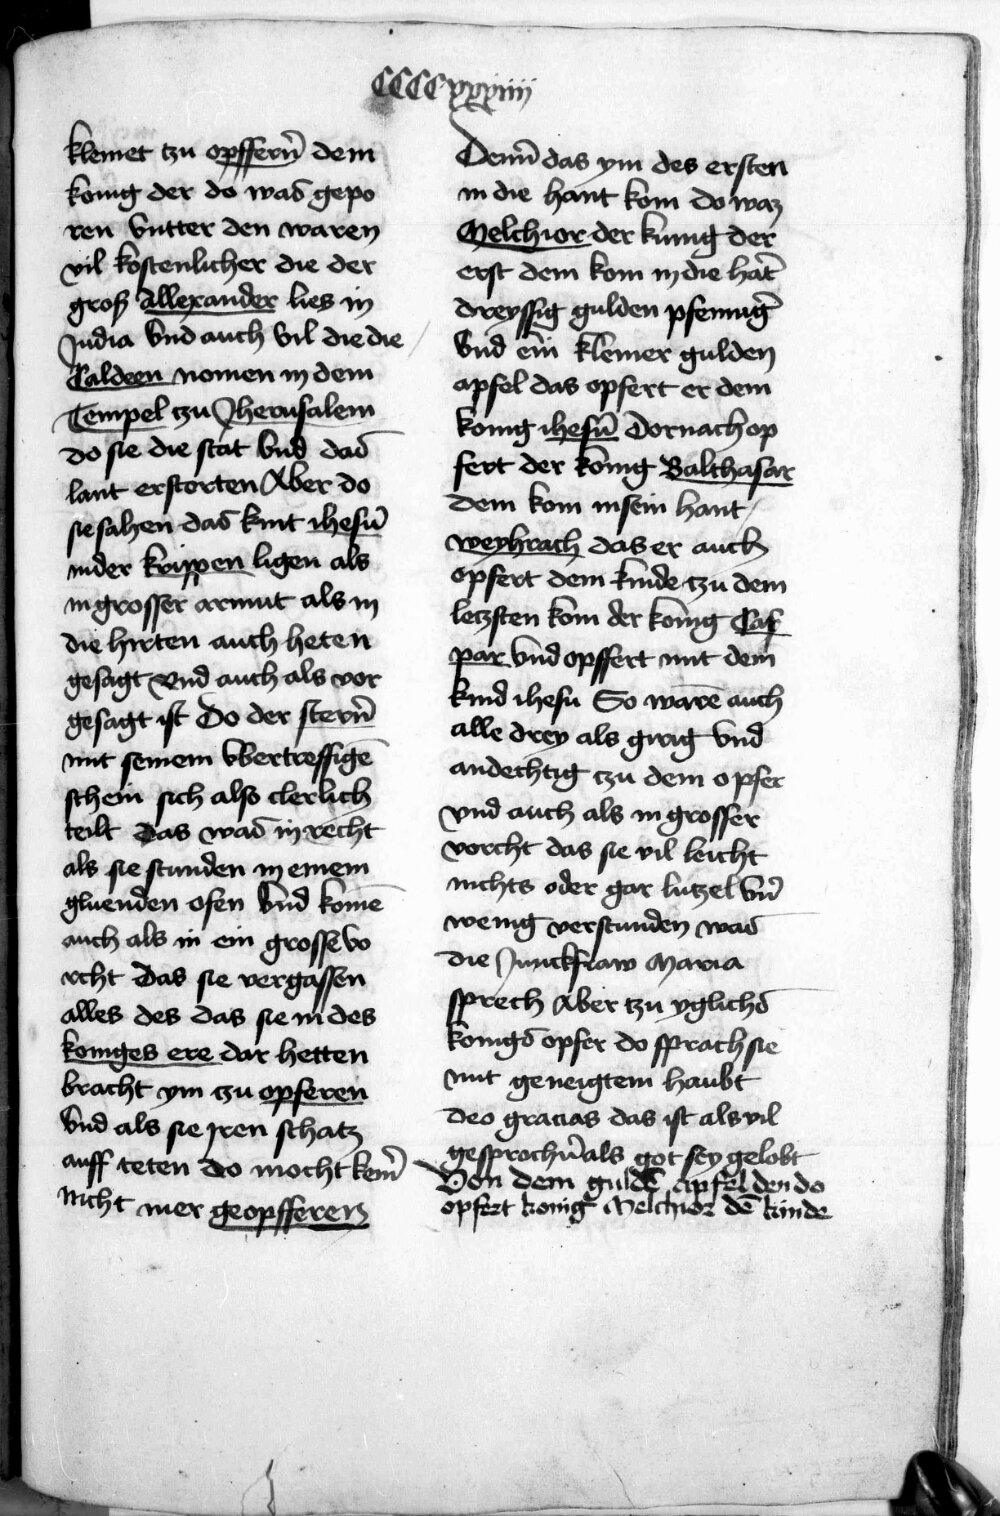 CCCCxxxiiij
klemet tzu opffern̄ dem
konig der do was gepo
ren Vntter den waren
vil kostenlicher die der
groß Allexander lies in
Jndia Vnd auch vil die die
Caldeen nomen in dem
Tempel tzu Jherusalem
do sie die stat Vnd das
lant erstorten Aber do
sie sahen das kint ihesū
inder krippen ligen als
in grosser armut als in
die hirten auch heten
gesagt Vnd auch als vor
gesagt ist Do der stern̄
mit seinem vbertreffigē
schein sich also clerlich
teilt Das was in recht
als sie stunden in einem
gluenden ofen Vnd komē
auch als in ein grosse vo
rcht Das sie vergassen
alles des das sie in des
koniges ere dar hetten
bracht ym tzu opferen
Vnd als sie jren schatz
auff teten do mocht kein̄
nicht mer geopfferen
Denn̄ das ym des ersten
in die hant kom do waz
Melchior der kunig der
erst dem kom in die hāt
dreyssig gulden pfenniḡ
Vnd ein klemer gulden
apfel das opfert er dem
konig ihesū Dornach op
fert der konig Balthasar
dem kom insein hant
weyhrach das er auch
opfert dem kinde tzu dem
letzsten kom der konig Cas
par Vnd opffert mit dem
kind ihesu So warē auch
alle drey als girig Vnd
andechtig tzu dem opfer
vnd auch als in grosser
vorcht das sie vil leicht
nichts oder gar lutzel Vn̄
wenig verstunden was
die Junckfraw Maria
sprech Aber tzu yglichs
konigs opfer do sprach sie
mit geneigtem haubt
deo gracias das ist als vil
gesprochn̄ als got sey gelobt
Von dem guldē apfel den do
opfert konig Melchior dē kinde